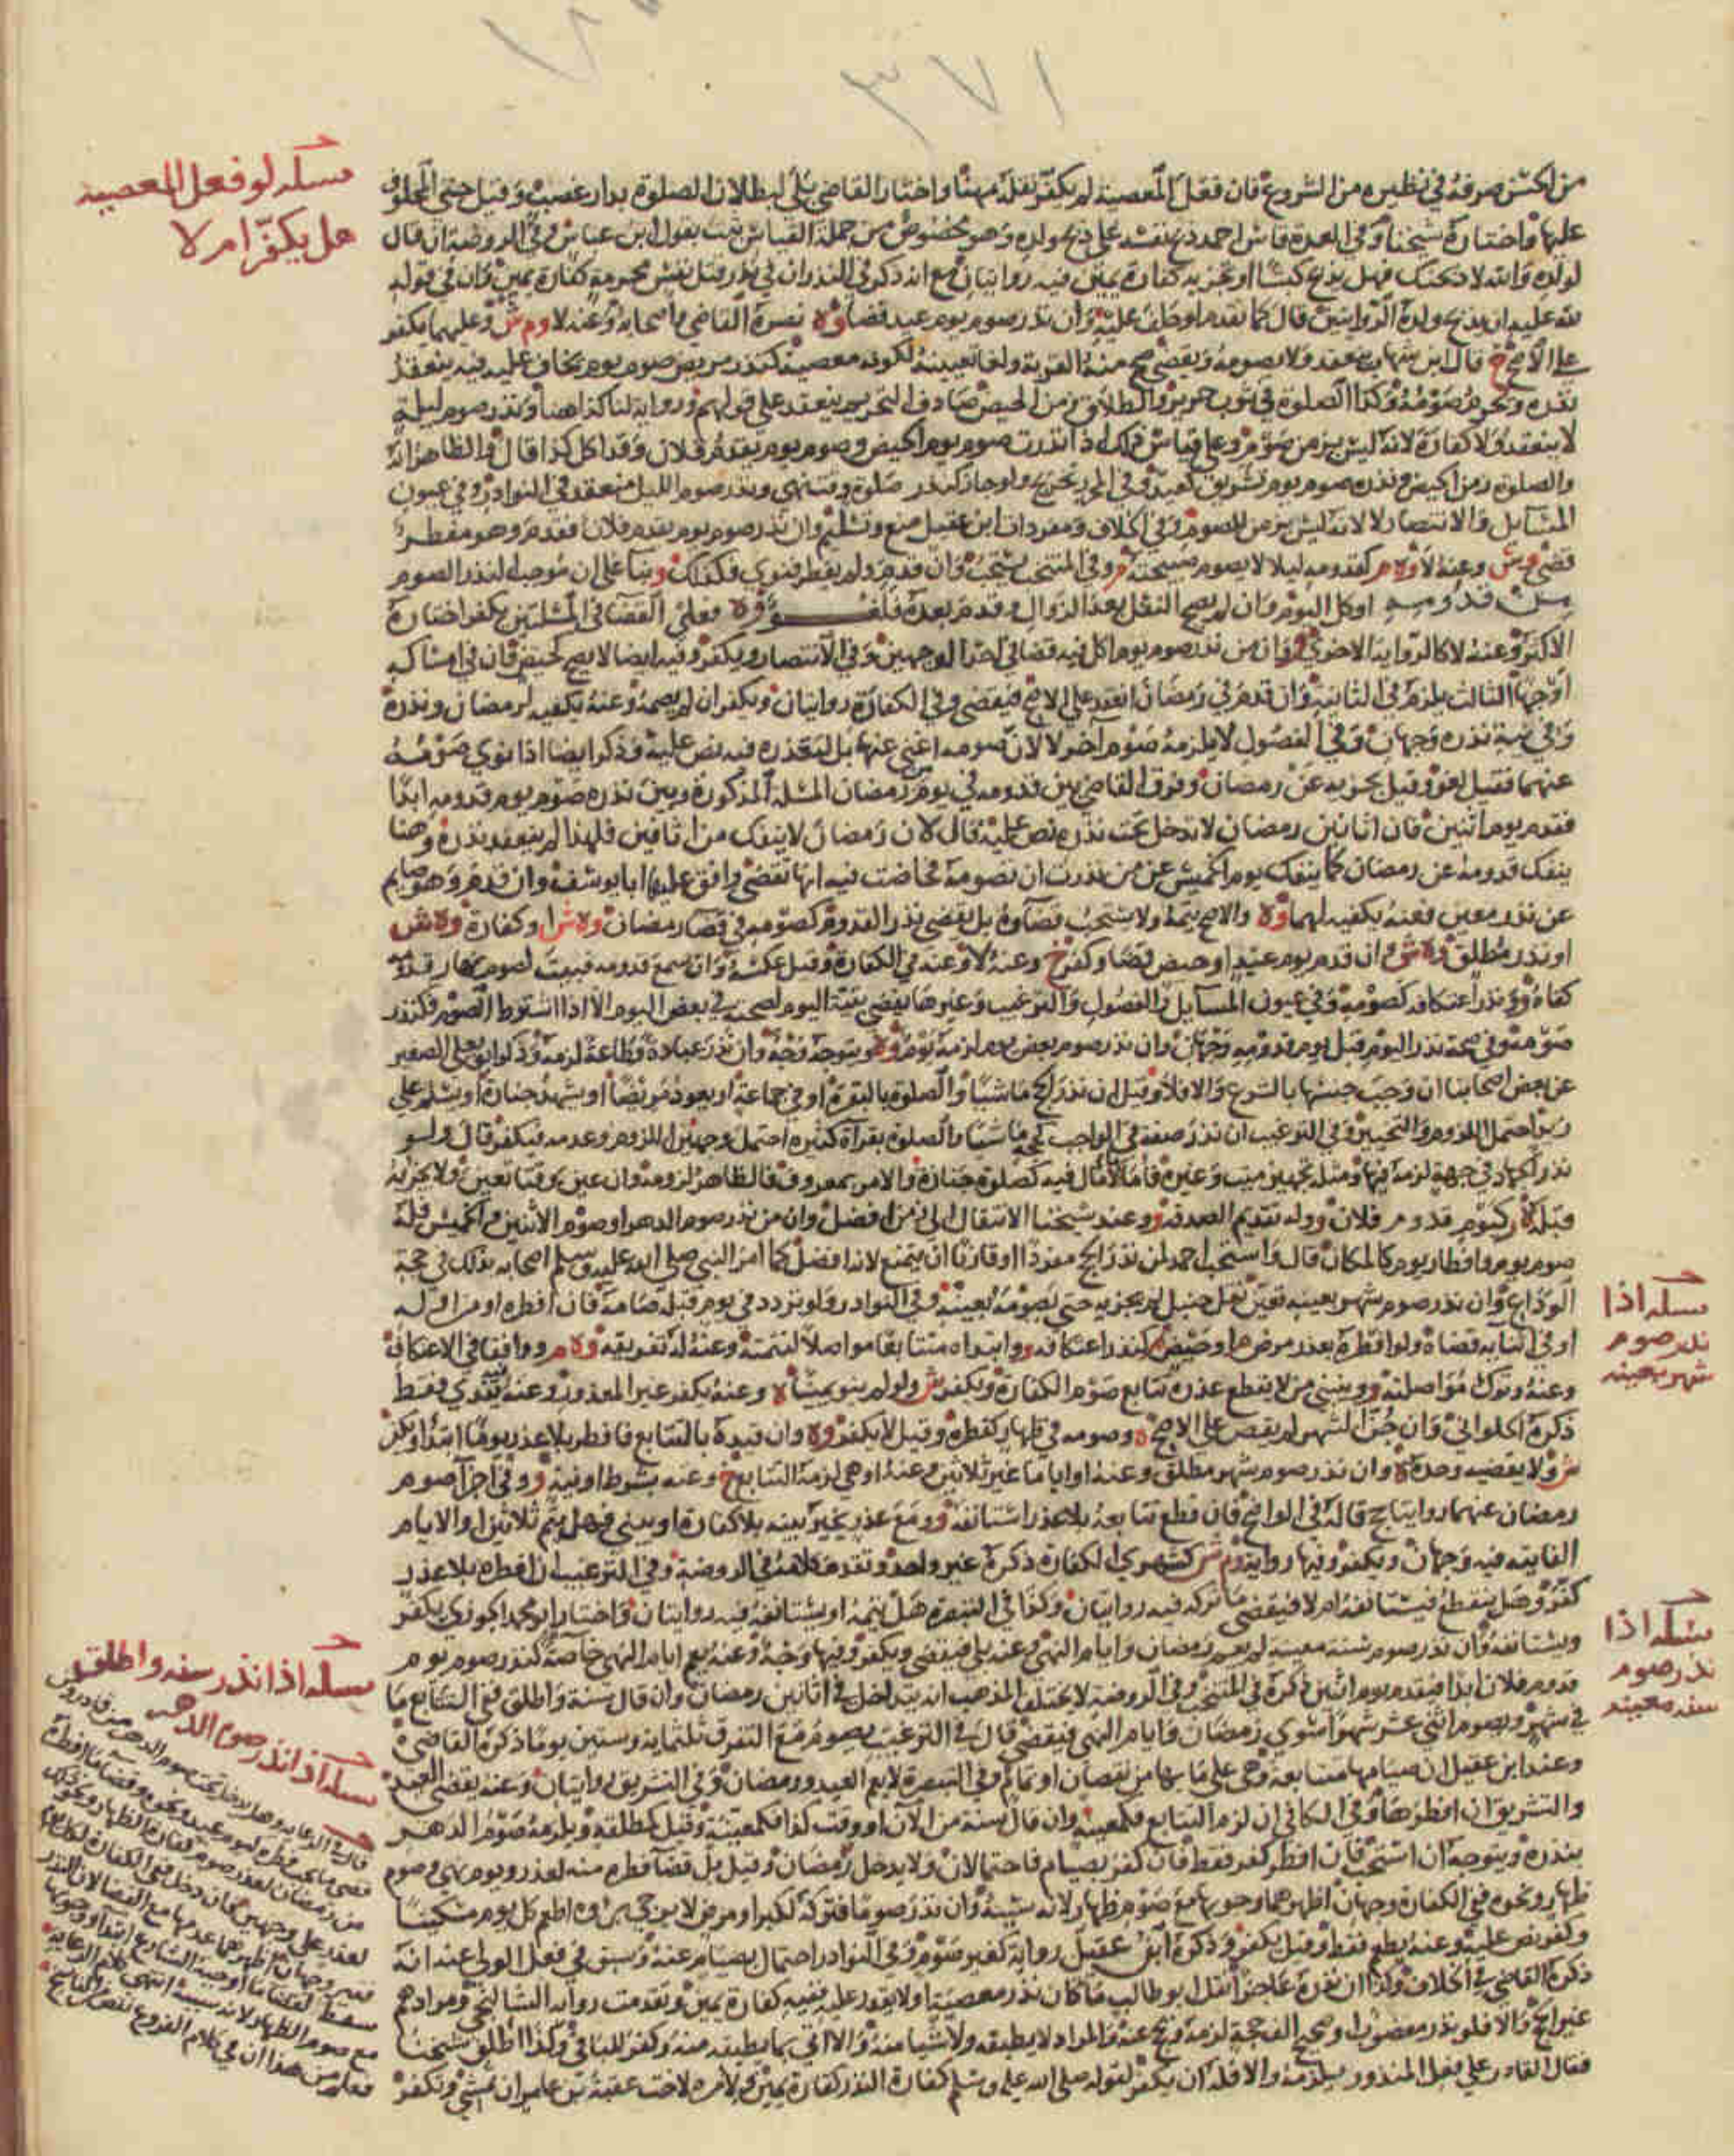 ١٧٣
مسئلة لو فعل المعصية
هل يكفر ام لا
فان فعل المعصية لم يكفر نقله مهنا واختار القاضي بلى لبطلان الصلوة بدار غصب وقيل حتى المحلوف
عليها واختاره شيخنا وفي العمدة قاس احمد ذبح نفسه على ذبح ولده وهو مخصوص من جملة القياس ثبت بقول ابن عباس وفي الروضة ان قال
لولده والله لاذبحنك فهل يذبح كبشا او تجزيه كفارة يمين فيه روايتان مع انه ذكر في النذر ان في نذر قتل نفس محرمة كفارة يمين وان في قوله
لله عليه ان يذبح ولده الروايتين قال كما تقدم او حلف عليه وان نذر صوم يوم عيد قضاه نصره القاضي واصحابه وعنه لا وعليهما يكفر
على الاصح قال ابن شهاب ينعقد ولا يصومه ويقضي فتصح منه القربة ولغا تعيينه لكونه معصية كنذر مريض صوم يوم يخاف عليه فيه ينعقد
نذره ويحرم صومه وكذا الصلوة في ثوب حرير والطلاق زمن الحيض صادف التحريم ينعقد على قولهم ورواية لنا كذا هنا ونذر صوم ليلة
لا ينعقد ولا كفارة لانه ليس بزمن صوم وعلى قياس ذلك اذا نذرت صوم يوم الحيض وصوم يوم يقدم فلان وقد اكل كذا قال والظاهر انه
والصلوة زمن الحيض ونذر صوم يوم تشريق كعيد ونذر صوم الليل منعقد في النوادر وفي عيون
المسائل والانتصار لا لانه ليس بزمن للصوم وفي الخلاف ومفردات ابن عقيل منع وتسليم وان نذر صوم يوم يقدم فلان فقدم وهو مفطر
قضى وعنه لا كقدومه ليلا لا يصوم صبيحته وفي المنتخب يستحب وان قدم ولم يفطر فنوى فكذلك بناء على ان موجب النذر الصوم
من قدومه او كل اليوم وان لم يصح النفل بعد الزوال وقدم بعده فلغو وعلى القضاء في المسئلتين يكفر اختاره
الاكثر وعنه لا كالرواية الاخرى وان من نذر صوم يوم اكل فيه قضى في احد الوجهين وفي الانتصار ويكفر وفيه ايضا لا يصح كحيض فان في امساكه
اوجها الثالث يلزم في الثانية وان قدم في رمضان انعقد على الاصح فيقضي وفي الكفارة روايتان ويكفر ان لم يصمه وعنه يكفيه لرمضان ونذره
وفي نية نذره وجهان وفي الفصول لا يلزمه صوم اخر لا لان صومه اغنى عنهما بل لتعذره فيه نص عليه وذكر ايضا اذا نوى صومه
عنهما فقيل لغو وقيل يجزيه عن رمضان وفرق القاضي بين قدومه في يوم رمضان المسئلة المذكورة وبين نذره صوم يوم قدومه ابدا
فقدم يوم اثنين فان اثانين رمضان لا تدخل تحت نذره نص عليه قال لان رمضان لا ينفك من اثانين فلهذا لم ينعقد نذره وهنا
ينفك قدومه عن رمضان كما ينفك يوم الخميس عن من نذرت ان تصومه فحاضت فيه انها تقضي وافق عليها ابا يوسف وان قدم وهو صايم
عن نذر معين فعنه يكفيه لهما والاصح يتمه ولا يستحب قضاؤه بل يقضي نذر القدوم كصومه في قضاء رمضان او كفارة
او نذر مطلق وان قدم يوم عيد او حيض قضى وكفر وعنه لا وعنه في الكفارة وقيل عكسه وان سمع قدومه فبيت لصوم نهار قدومه
كفاه ونذر اعتكافه كصومه وفي عيون المسايل والفصول والترغيب وغيرها يقضي بقية اليوم لصحته في بعض اليوم الا اذا اشترط الصوم فكنذر
صومه وفي صحة نذر اليوم قبل يوم قدومه وجهان وان نذر صوم بعض يوم لزمه يوم ويتوجه وجه وان نذر عبادة وطاعة لزمه وذكر ابو يعلى الصغير
عن بعض اصحابنا ان وجب جنسها بالشرع والا فلا وقيل ان نذر الحج ماشيا والصلوة بالبقرة او في جماعة او يعود مريضا او يشهد جنازة او يسلم على
زيد احتمل اللزوم والتخيير وفي الترغيب ان نذر صفة في الواجب كحجه ماشيا والصلوة بقراءة كثيرة احتمل وجهين اللزوم وعدمه فيكفر قال ولو
نذر الجهاد في جهة لزمه فيها ومثله تجهيز ميت وغيره فاما لا مال فيه كصلوة جنازة والامر بمعروف فالظاهر لزومه وان عين وقتا تعين ولا يجزيه
قبله كيوم قدوم فلان وله تقديم الصدقة وعند شيخنا الانتقال الى زمن افضل وان من نذر صوم الدهر او صوم الاثنين والخميس فله
صوم يوم وافطار يوم كالمكان قال واستحب احمد لمن نذر الحج مفردا او قارنا ان يتمتع لانه افضل كما امر النبي صلى الله عليه وسلم اصحابه بذلك في حجة
الوداع وان نذر صوم شهر بعينه تعين نقل حنبل لم يجزيه حتى يصومه بعينه وفي النوادر ولو تردد في يوم قبله صامه فان افطره او من اوله
مسئلة اذا
نذر صوم
شهر بعينه
او في اثنايه قضاه ولو افطره بعذر مرض او حيض كنذر اعتكافه وابتداه متتابعا مواصلا لتتمته وعنه له تفريقه ووافقنا في الاعتكاف
وعنه وترك مواصلته ويبني من لا يقطع عذره تتابع صوم الكفارة ويكفر ولو لم ينو يمينا وعنه يكفر غير المعذور وعنه يفدي فقط
ذكره الحلواني وان جن الشهر لم يقض على الاصح وصومه في ظهار كفطره وقيل لا يكفر وان قيده بالتتابع فافطر بلا عذر يوما ابتدا وكفر
ولا يقضيه وحده وان نذر صوم شهر مطلق وعنه او اياما غير ثلاثين وعنه او هي لزمه التتابع وعنه بشرط او نية وفي اجزا صوم
رمضان عنهما روايتان قاله في الواضح فان قطع تتابعه بلا عذر استانفه ومع عذر يخير بينه بلا كفارة او يبني فهل يتم ثلاثين او الايام
الفايتة فيه وجهان ويكفر وفيها رواية كشهري الكفارة ذكره غير واحد وتقدم كلامه في الروضة وفي الترغيب ان افطره بلا عذر
كفر وهل ينقطع فيستانفه ام لا فيقضي ما تركه فيه روايتان وكذا في التبصرة هل يتمه او يستانفه فيه روايتان واختار ابو محمد الجوزي يكفر
مسئلة اذا
نذر صوم
سنة معينة
ويستانفه وان نذر صوم سنة معينة لم يعم رمضان وايام النهي وعنه بلى فيقضي ويكفر وفيها وجه وعنه يعم ايام النهي خاصة كنذر صوم يوم
مسئلة اذا نذر سنة واطلق
قدوم فلان ابدا فيقدم يوم اثنين ذكره في المنتخب وفي الروضة لا يختلف المذهب انه يتداخل في اثانين رمضان وان قال سنة واطلق ففي التتابع ما
في شهر ويصوم اثنى عشر شهرا سوى رمضان وايام النهي فيقضي قال في الترغيب يصوم مع التفرق ثلثماية وستين يوما ذكره القاضي
مسئلة اذا نذر صوم الدهر
وعند ابن عقيل ان صيامها متتابعة وهي على ما بها من نقصان او تمام وفي التبصرة لا يعم العيد ورمضان وفي التشريق روايتان وعنه يقضي العيد
والتشريق ان افطرها وفي الكافي ان لزم التتابع فكمعينة وان قال سنة من الآن او وقت كذا فكمعينة وقيل كمطلقة ويلزمه صوم الدهر
بنذره ويتوجه ان استحب فان افطر كفر فقط فان كفر بصيام فاحتمالان ولا يدخل رمضان وقيل بل قضاء فطره منه لعذر ويوم نهي وصوم
ظهار ونحوه ففي الكفارة وجهان اظهرهما وجوبها مع صوم ظهار لانه سببه وان نذر صوما فتركه لكبر او مرض لا يرجى برؤه اطعم كل يوم مسكينا
وكفر نص عليه وعنه يطعم فقط وقيل يكفر وذكره ابن عقيل رواية كغير صوم وفي النوادر احتمال يصام عنه وسبق في فعل الولي عنه انه
ذكره القاضي في الخلاف وكذا ان نذره عاجزا نقل ابو طالب ما كان نذر معصية او لا يقدر عليه ففيه كفارة يمين وتقدمت رواية الشالنجي ومرادهم
غير الحج والا فلو نذر معضوب او صحيح الف حجة لزمه ويحج عنه والمراد لا يطيقه ولا شيا منه والا اتى بما يطيقه منه وكفر للباقي وكذا اطلق شيخنا
فقال القادر على فعل المنذور يلزمه والا فله ان يكفر لقوله صلى الله عليه وسلم كفارة النذر كفارة يمين ولامره لاخت عقبة بن عامر ان تمشي وتكفر
قال في الرعاية وهل يدخل تحت صوم الدهر من قادر
قضى ما يجب فطره ليوم عيد ونحوه وقضا ما افطره
من رمضان لعذر وصوم كفارة الظهار ونحو ذلك
لعذر على وجهين فان دخل ففي الكفارة لكل يوم
فقير وجهان اظهرهما عدمها مع القضا لان النذر
سقط لقضا ما اوجبه الشارع ابتدا ووجوبها
مع صوم الظهار لانه سببه انتهى كلام الرعاية
فعلم من هذا ان في كلام الفروع نقص من الناسخ